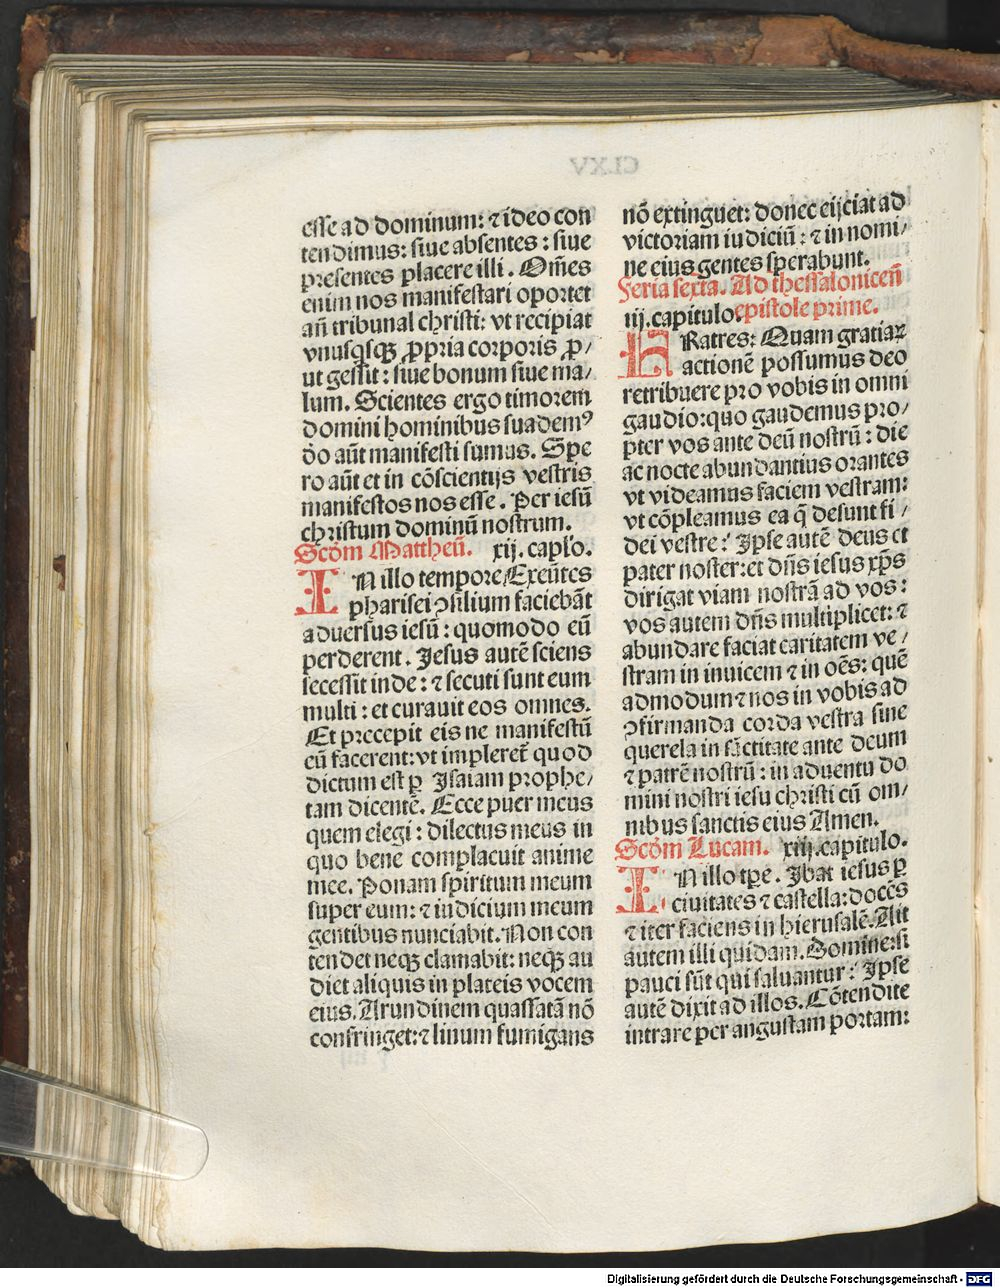 esse ad dominum: ⁊ ideo con
tendimus: siue absentes : siue
presentes placere illi . Om̄es
enim nos manifestari oportet
an̄ tribunal christi: vt recipiat
vnusqꝫqꝫ ꝓpria corporis ꝓ/
ut gessit : siue bonum siue ma/
lum. Scientes ergo timorem
domini hominibus suademꝰ
do aūt manifesti sumus. Spe
ro aūt et in cōscientijs vestris
manifestos nos esse . Per iesū
christum dominū nostrum.
Scd̄m Mattheū. xij. capl'o.
IN illo tempore/Exeūtes
pharisei ꝯsilium faciebāt
aduersus iesū : quomodo eū
perderent . Jesus autē sciens
secessit inde : ⁊ secuti sunt eum
multi : et curauit eos omnes.
Et precepit eis ne manifestū
eū facerent: vt impleret̄ quod
dictum est ꝑ Isaiam prophe/
tam dicentē. Ecce puer meus
quem elegi : dilectus meus in
quo bene complacuit anime
mee. Ponam spiritum meum
super eum: ⁊ iudicium meum
gentibus nunciabit. Non con
tendet neqꝫ clamabit: neqꝫ au
diet aliquis in plateis vocem
eius. Arundinem quassatā nō
confringet: ⁊ linum fumigans
nō extinguet: donec eijciat ad
victoriam iudiciū : ⁊ in nomi/
ne eius gentes sperabunt.
Feria sexta. Ad thessalonicen̄
iij. capitulo. epistole prime.
FRatres: Quam gratiaꝝ
actionē possumus deo
retribuere pro vobis in omni
gaudio: quo gaudemus pro/
pter vos ante deū nostrū : die
ac nocte abundantius orantes
vt videamus faciem vestram:
vt cōpleamus ea q̄ desunt fi/
dei vestre : Ipse autē deus et
pater noster: et dn̄s iesus xp̄s
dirigat viam nostrā ad vos :
vos autem dn̄s multiplicet: ⁊
abundare faciat caritatem ve/
stram in inuicem ⁊ in oēs: quē
admodum ⁊ nos in vobis ad
ꝯfirmanda corda vestra sine
querela in sāctitate ante deum
⁊ patrē nostrū : in aduentu do
mini nostri iesu christi cū om/
nibus sanctis eius Amen.
Scd̄m Lucam. xiij. capitulo.
IN illo tp̄e . Ibat iesus ꝑ
ciuitates ⁊ castella: docēs
⁊ iter faciens in hierusalē. Ait
autem illi quidam. Domine: si
pauci sūt qui saluantur : Ipse
autē dixit ad illos. Cōtendite
intrare per angustam portam:
Digitalisierung gefördert durch die Deutsche Forschungsgemeinschaft - DFG